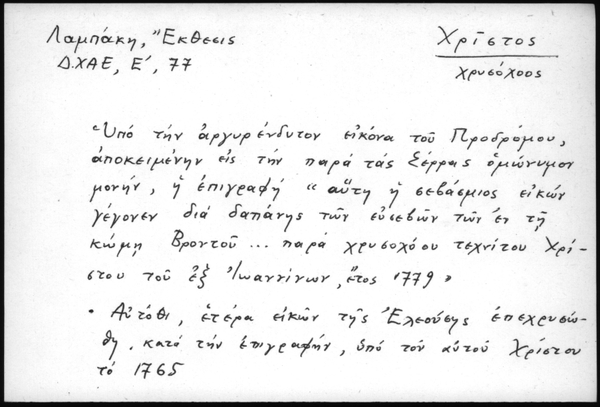 Λαμπάκη, "Εκθεσις
Δ.ΧΑΕ, Ε', 77
Χρῖστος
χρυσόχοος
"Ὑπό τήν ἀργυρένδυτον εἰκόνα τοῦ Προδρόμου,
ἀποκειμένην εἰς τήν παρά τάς Σέρρας ὁμώνυμον
μονήν, ἡ ἐπιγραφή "αὕτη ἡ σεβάσμιος εἰκών
γέγονεν διά δαπάνης τῶν εὐσεβῶν τῶν ἐν τῇ
κώμῃ Βροντοῦ... παρά χρυσοχόου τεχνίτου Χρί-
στου τοῦ ἐξ Ἰωαννίνων, ἔτος 1779»
• Αὐτόθι, ἑτέρα εἰκών τῆς Ἐλεούσης ἐπεχρυσώ-
θη, κατά τήν ἐπιγραφήν, ὑπό τοῦ αὐτοῦ Χρίστου
τό 1765